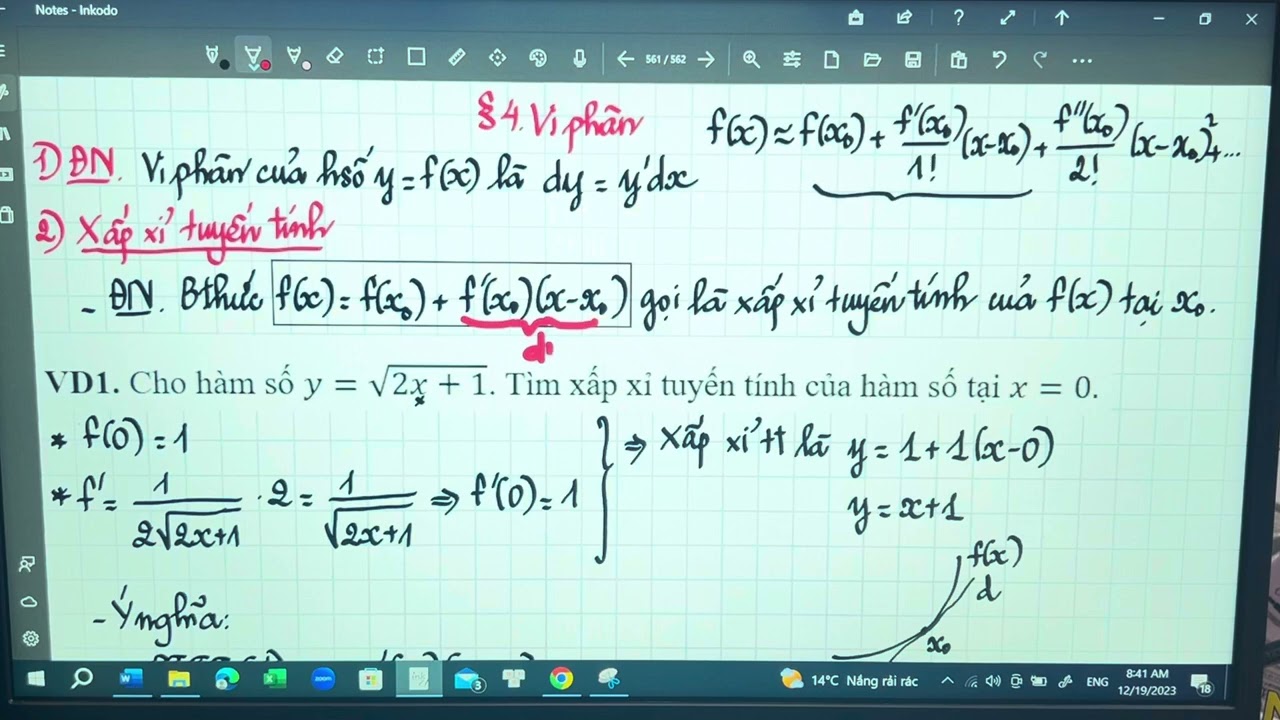 Notes - Inkodo
561 / 562
§4. Vi phân
f(x) ≈ f(x₀) + f'(x₀)/1! (x-x₀) + f''(x₀)/2! (x-x₀)² + ...
1) ĐN. Vi phân của hsố y = f(x) là dy = y'dx
2) Xấp xỉ tuyến tính
- ĐN. Bthức f(x) = f(x₀) + f'(x₀)(x-x₀) gọi là xấp xỉ tuyến tính của f(x) tại x₀.
VD1. Cho hàm số y = √(2x + 1). Tìm xấp xỉ tuyến tính của hàm số tại x = 0.
* f(0) = 1
* f' = 1/(2√(2x+1)) · 2 = 1/√(2x+1) ⇒ f'(0) = 1
⇒ xấp xỉ tt là y = 1 + 1(x-0)
y = x+1
f(x)
d
x₀
- Ý nghĩa:
14°C Nắng rải rác
ENG
8:41 AM
12/19/2023
3
18